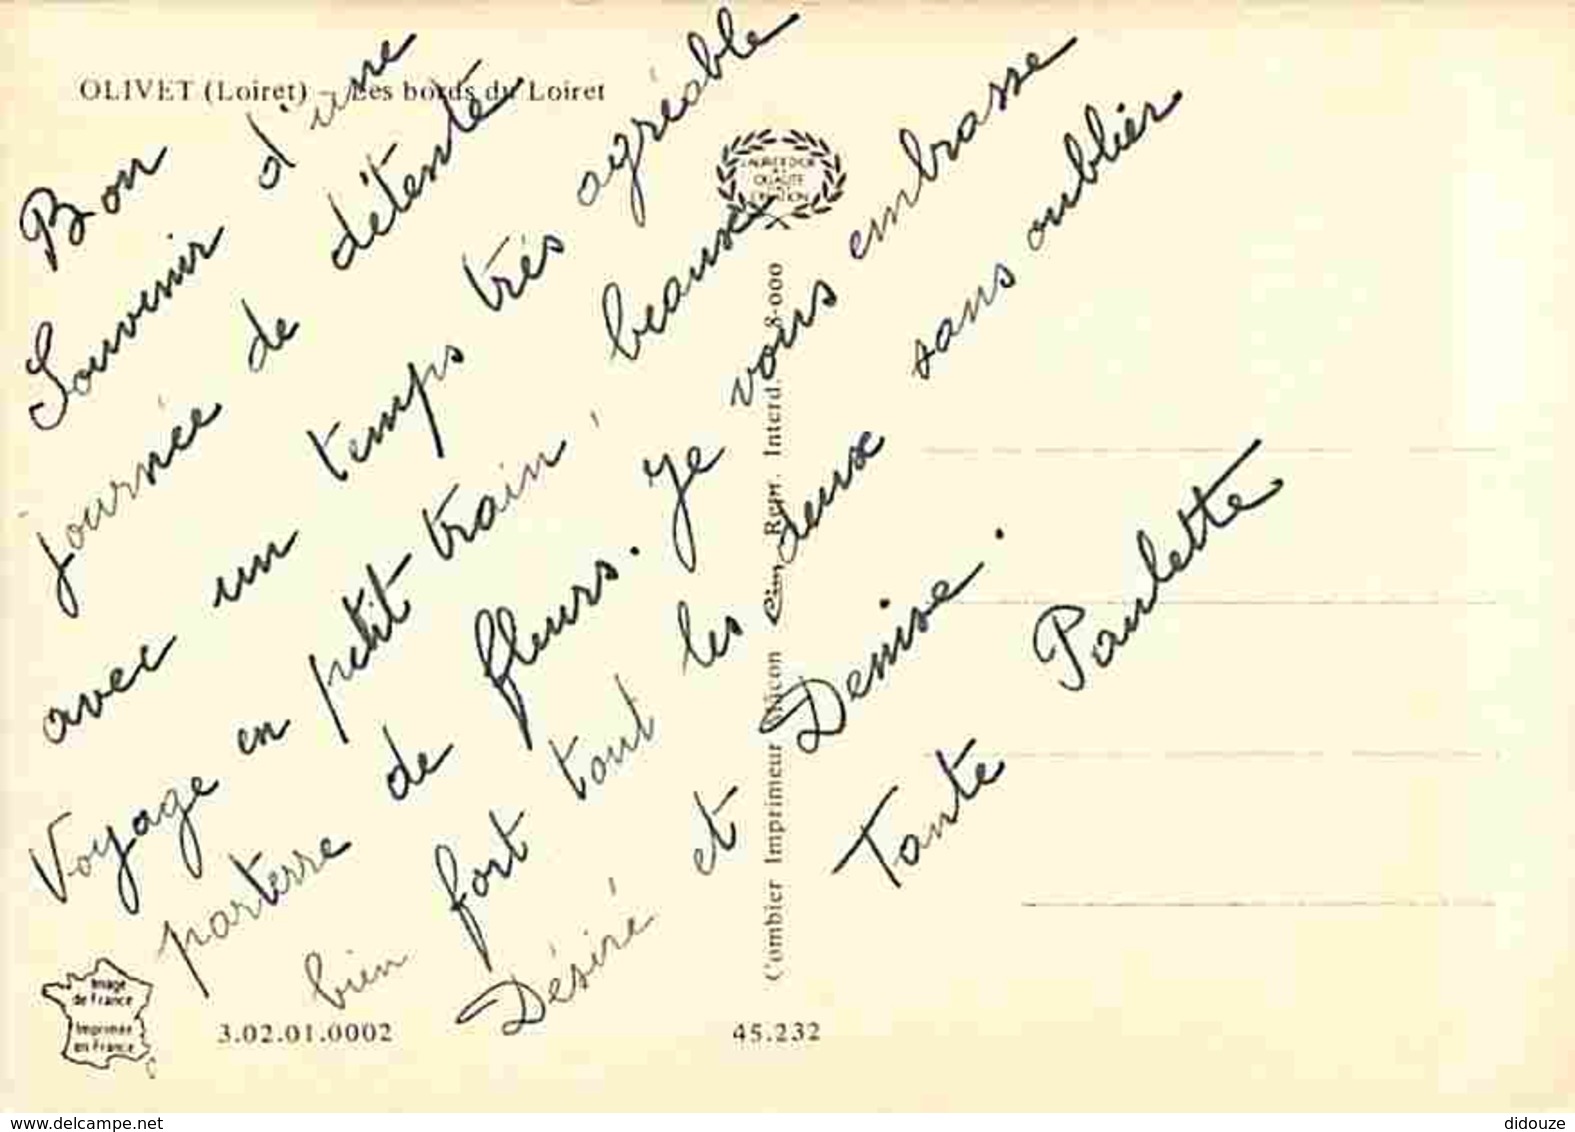 OLIVET (Loiret) - Les bords du Loiret
Bon
Souvenir d'une
journée de détente
avec un temps très agréable
Voyage en petit train, beaux
parterre de fleurs. Je vous embrasse
bien fort tout les deux sans oublier
Désiré et Denise.
Tante Paulette
LAURIER D'OR
QUALITE
CREATION
Combier Imprimeur Mâcon Cim Repr. Interd. 8-000
Image
de France
Imprimée
en France
3.02.01.0002
45.232
www.delcampe.net
didouze